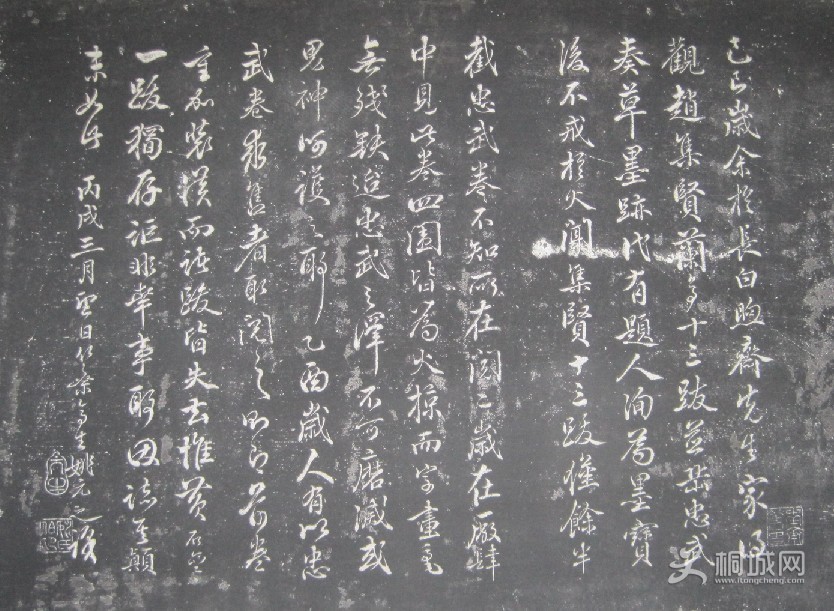 己巳歲余於長白煦齋先生家得
觀趙集賢蘭亭十三跋並岳忠武
奏草墨跡代有題人洵為墨寶
後不戒於火聞集賢十三跋僅餘半
截忠武卷不知所在閱二歲在厰肆
中見此卷四圍皆為火掠而字畫毫
無殘缺迨忠武之澤不可磨滅或
鬼神呵護之耶乙酉歲人有以忠
武卷求售者取閱之即前卷
重加裝潢而諸跋皆失去惟黃石齋
一跋獨存詎非幸事耶因誌其顛
末如此 丙戌三月望日竹葉亭生姚元之跋
桐城网
www.itongcheng.com